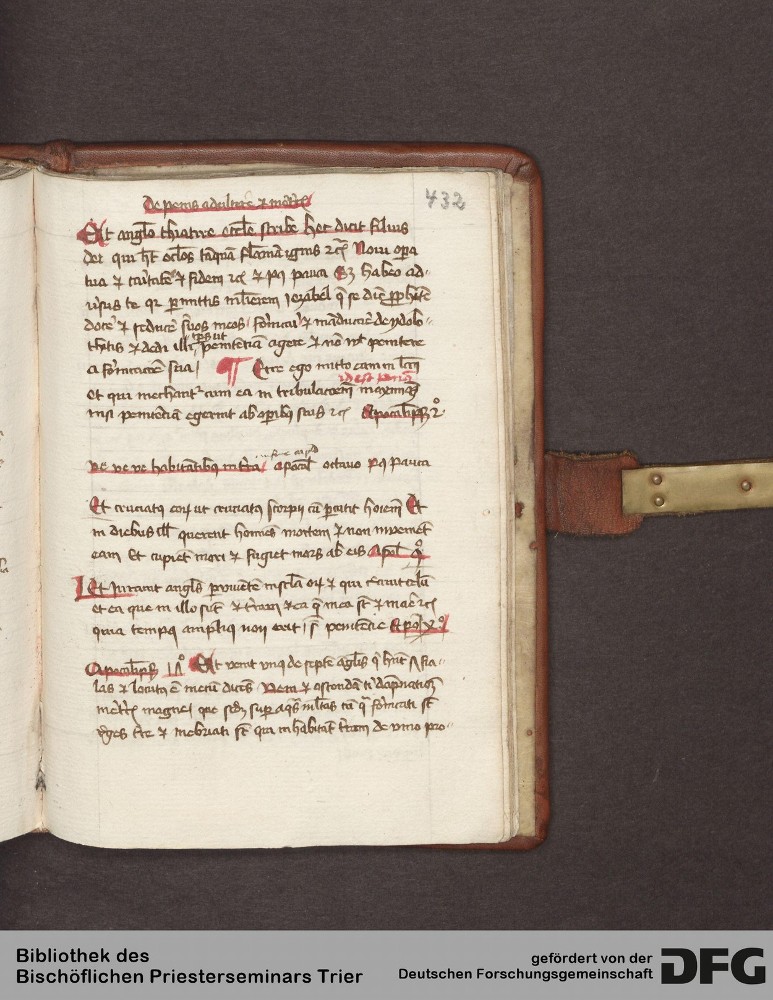 De penis adultere et meretricis
432
Et anglo thiatire eccle scribe hec dicit filius
dei qui ht oclos tāquā flāmā ignis rc Noui opera
tua et caritatē et fidem rc et p9 pauca Sz habeo ad-
uersus te qr permittis mlierem iezabel q se dicit prophetē
docere et seducere suos meos fornicari et māducare de ydolo-
thytis et dedi illi tps ut penitenciā agere et nō vult penitere
a fornicacōe sua ¶ Ecce ego mitto eam in lcm
id est penā
et qui mechantr cum ea in tribulacōem maximā
nisi penitēciā egerint ab operibus suis rc Apocalips 2o
ve ve ve habitātibus in terra Apocal octauo p9 pauca
Et cruciatus eorum ut cruciatus scorpii cū percutit hoiem Et
in diebus ill querent homines mortem et non inuenient
eam Et cupient mori et fugiet mors ab eis Apocal 9o
Et iurauit angelus per viuentē in scla
et ea que in illo sūt et terram et ea que in ea sūt et mare rc
quia tempus amplius non erit s penitēcie Apoc xo
Apocalips 17o Et venit vnus de septē anglis q hnt 7 fia-
las et locutus ē mecū dicēs Veni et ostendā tibi dāpnationem
meretricis magne que sedet super aquas mltas cū qua fornicati sūt
reges terre et inebriati sūt qui inhabitāt terram de vino pro-
Bibliothek des
Bischöflichen Priesterseminars Trier
gefördert von der
Deutschen Forschungsgemeinschaft
DFG